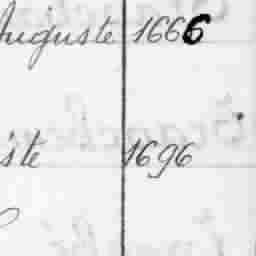 Auguste 1666
iste 1696